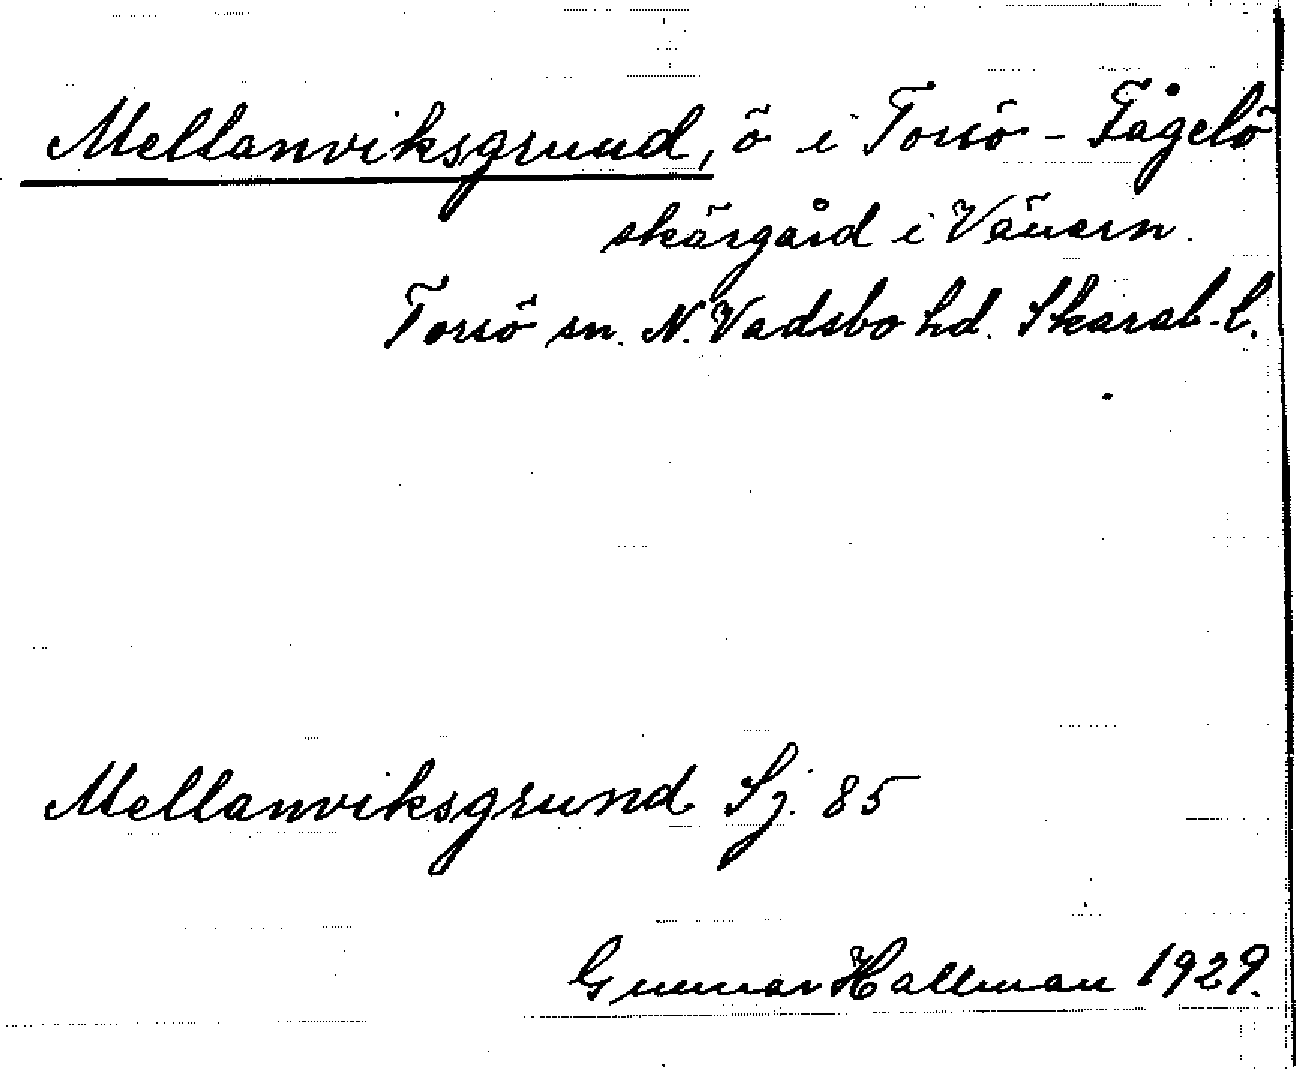 Mellanviksgrund, ö i Torsö - Fågelö
skärgård i Vänern.
Torsö sn. N. Vadsbo hd. Skarab. l.
Mellanviksgrund Sj. 85
Gunnar Hallman 1929.